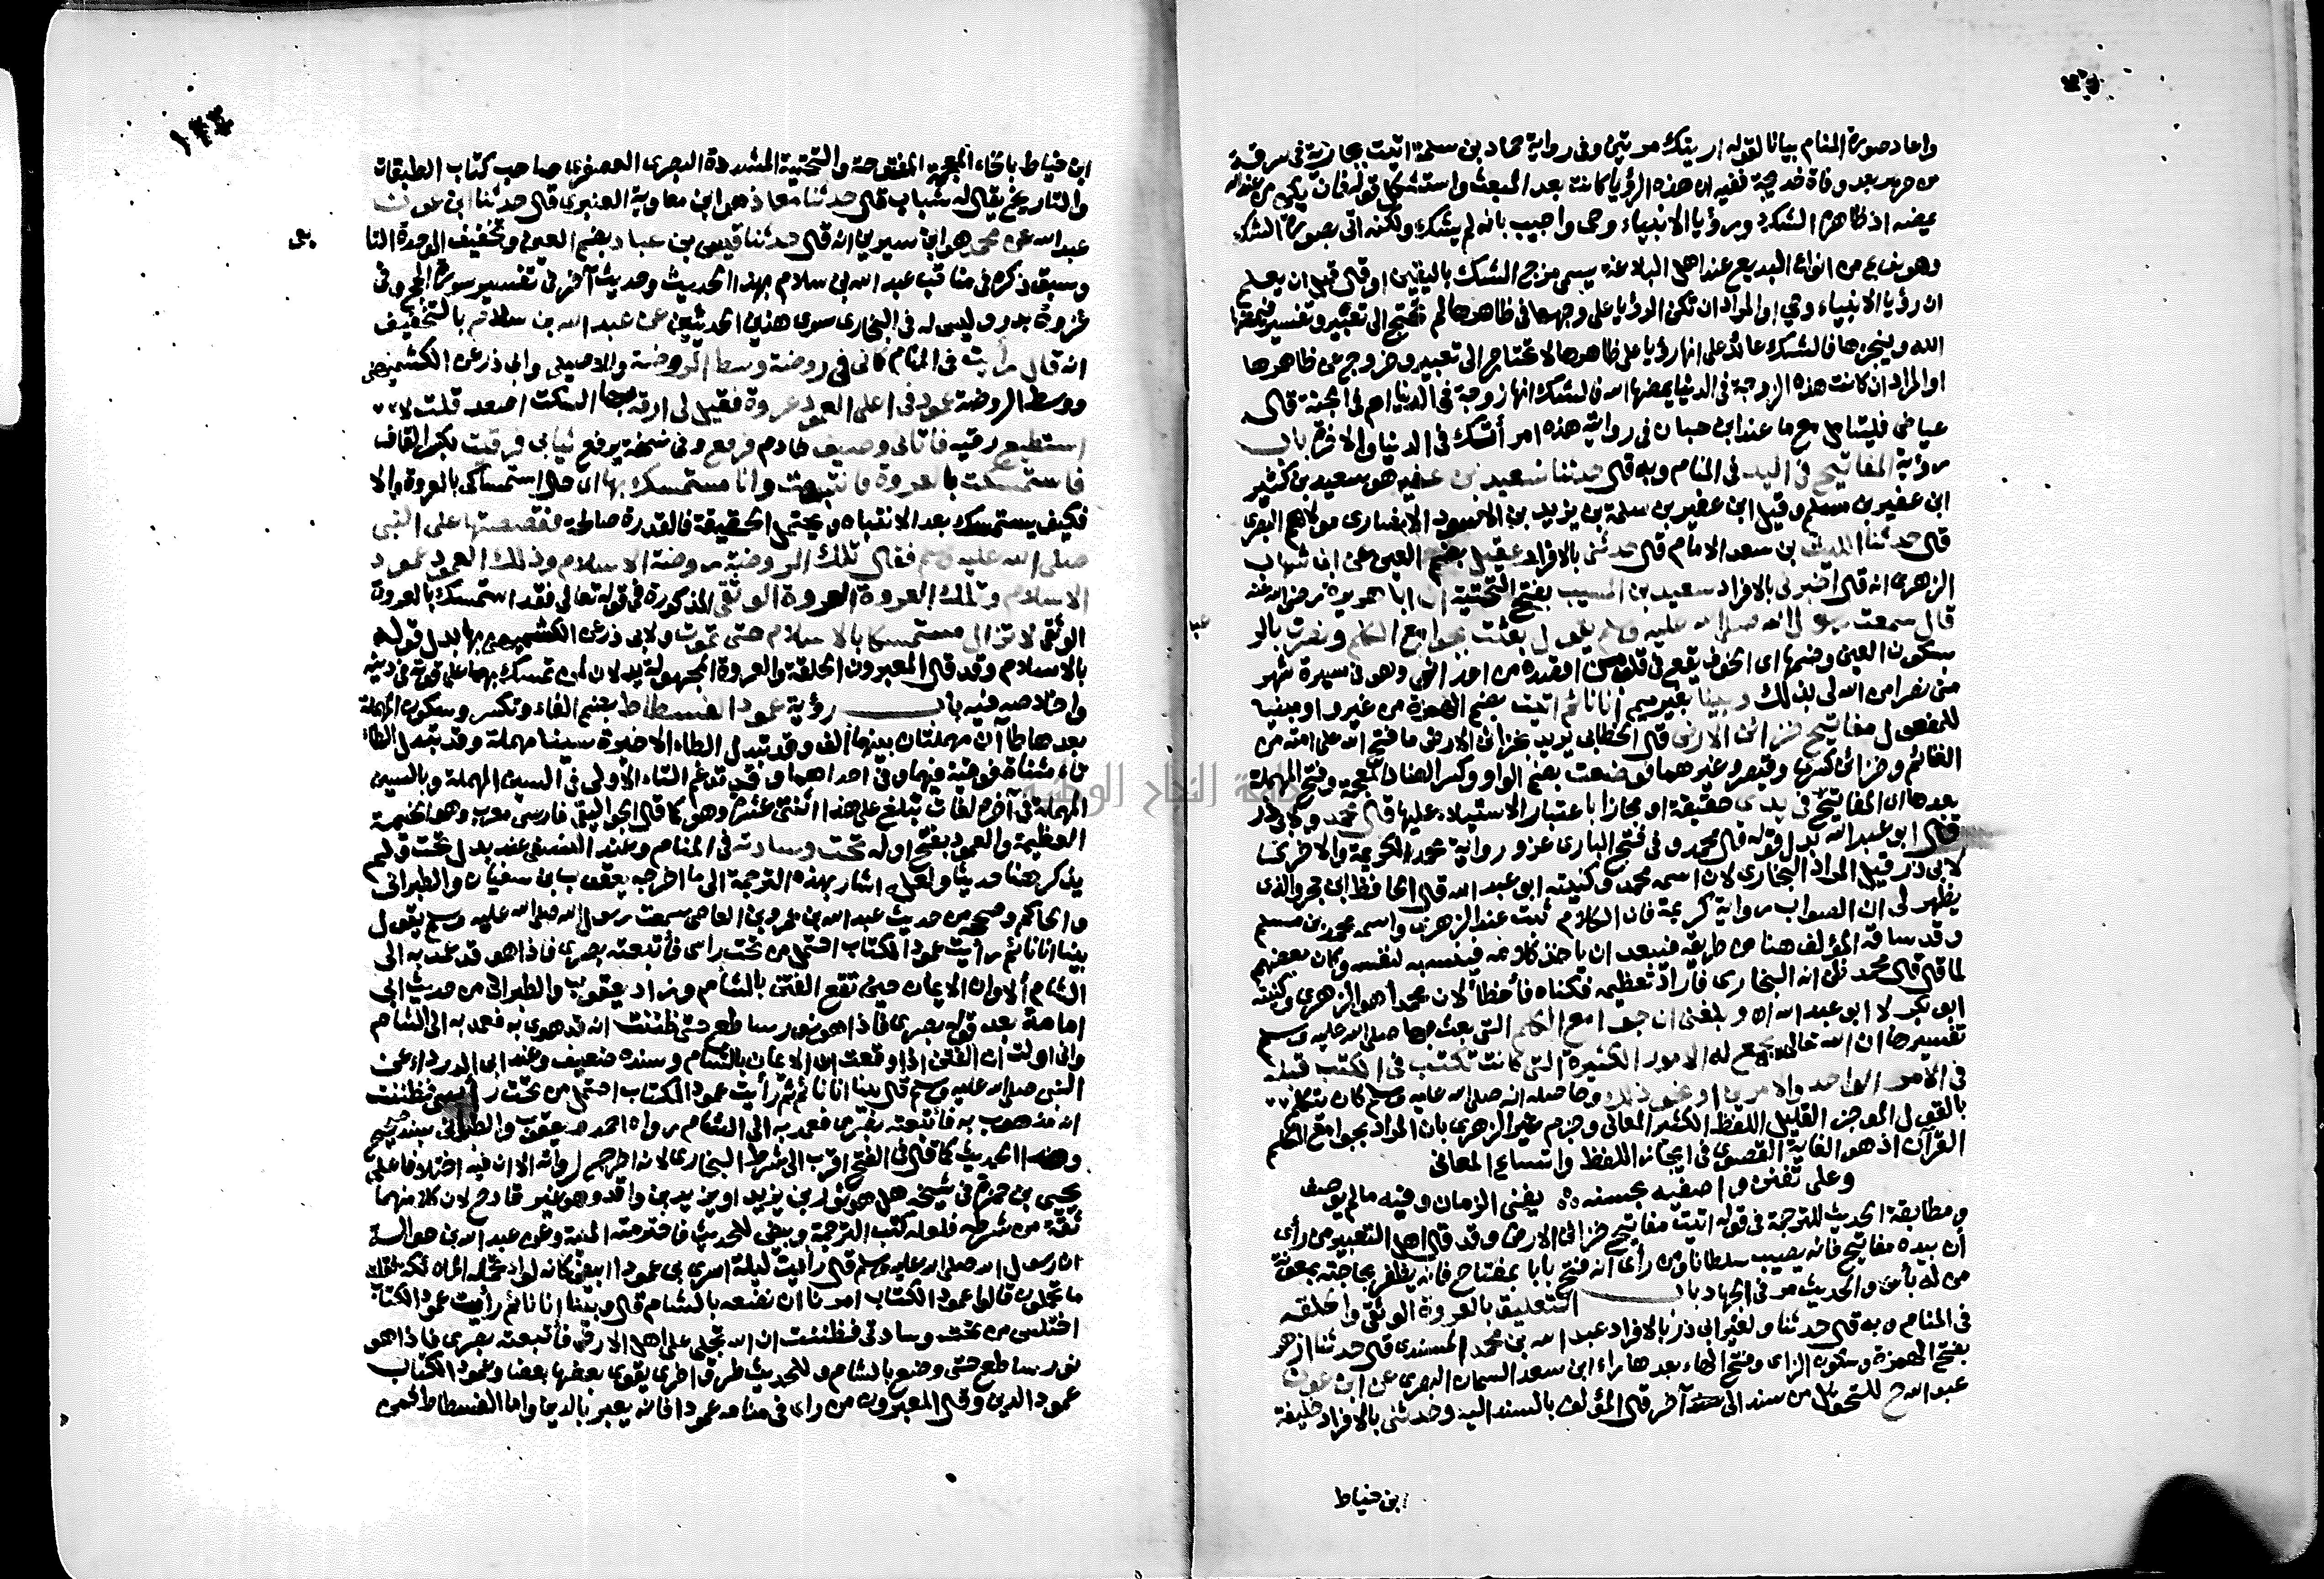 واعاد صورة المنام بيانا لقوله اريتك مرتين وفى رواية حماد بن سلمة اتيت بجارية فى سرقة
من حرير بعد وفاة خديجة ففيه ان هذه الرؤيا كانت بعد المبعث واستشكل قوله فان يكن من عند الله
يمضه اذ ظاهره الشك ورؤيا الانبياء وحى واجيب بانه لم يشك ولكنه اتى بصورة الشك
وهو نوع من انواع البديع عند اهل البلاغة يسمى مزج الشك باليقين او قال قبل ان يعلم
ان رؤيا الانبياء وحي او المراد ان تكن الرؤيا على وجهها فى ظاهرها لم تحتج الى تعبير وتفسير فيمضها
الله وينجزها فالشك عائد على انها رؤيا على ظاهرها لا تحتاج الى تعبير وخروج عن ظاهرها
او المراد ان كانت هذه الزوجة فى الدنيا يمضها الله فالشك انها زوجة فى الدنيا ام فى الجنة قال
عياض فليتامل مع ما عند ابن حبان فى رواية هذه امرأتك فى الدنيا والاخرة باب
رؤية المفاتيح فى اليد فى المنام وبه قال حدثنا سعيد بن عفير هو سعيد بن كثير
ابن عفير بن مسلم وقيل ابن عفير بن سلمة بن يزيد بن الاسود الانصارى مولاهم البصرى
قال حدثنا الليث بن سعد الامام قال حدثنى بالافراد عقيل بضم العين عن ابن شهاب
الزهرى انه قال اخبرنى بالافراد سعيد بن المسيب بفتح التحتية ان ابا هريرة رضى الله عنه
قال سمعت رسول الله صلى الله عليه وسلم يقول بعثت بجوامع الكلم ونصرت بالر
بسكون العين وضمها اى الخوف يقع فى قلب من اقصده من اعدائى وهو فى مسيرة شهر
منى نصرا من الله لى بذلك وبينا بغير ميم انا نائم اتيت بضم الهمزة من غير واو مبنيا
للمفعول مفاتيح خزائن الارض قال الخطابى يريد خزائن الارض ما فتح الله على امته من
الغنائم وخزائن كسرى وقيصر وغيرهما فوضعت بضم الواو وكسر الضاد المعجمة وفتح المهملة
بعدها اى المفاتيح فى يدى حقيقة او مجازا باعتبار الاستيلاء عليها قال محمد ولابى ذر
قال ابو عبد الله بدل قوله قال محمد وفى فتح البارى عزو رواية محمد لكريمة والاخرى
لابى ذر قيل المراد البخارى لان اسمه محمد وكنيته ابو عبد الله قال الحافظ ابن حجر والذى
يظهر لى ان الصواب رواية كريمة فان الكلام ثبت عند الزهرى واسمه محمد بن مسلم
وقد ساقه المؤلف هنا من طريقه فيبعد ان ياخذ كلامه فينسبه لنفسه وكان بعضهم
لما قال قال محمد ظن انه البخارى فاراد تعظيمه فكناه فأخطأ لان محمدا هو الزهرى وكنيته
ابو بكر لا ابو عبد الله اه وبلغنى ان جوامع الكلم التى بعث بها صلى الله عليه وسلم
تفسيرها ان الله تعالى يجمع له الامور الكثيرة التى كانت تكتب فى الكتب قبله
فى الامر الواحد والامرين او نحو ذلك وحاصله انه صلى الله عليه وسلم كان يتكلم
بالقول الموجز القليل اللفظ الكثير المعانى وجزم غير الزهرى بان المراد بجوامع الكلم
القرآن اذ هو الغاية القصوى فى ايجاز اللفظ واتساع المعانى
وعلى تفنن واصفيه بحسنه يفنى الزمان وفيه ما لم يوصف
ومطابقة الحديث للترجمة فى قوله اتيت مفاتيح خزائن الارض وقد قال اهل التعبير من رأى
ان بيده مفاتيح فانه يصيب سلطانا ومن رأى انه فتح بابا بمفتاح فانه يظفر بحاجته بمعونة
من له بأس والحديث مر فى الجهاد باب التعليق بالعروة الوثقى والحلقة
فى المنام وبه قال حدثنا ولغير ابى ذر بالافراد عبد الله بن محمد المسندى قال حدثنا ازهر
بفتح الهمزة وسكون الزاى وفتح الهاء بعدها راء ابن سعد السمان البصرى عن ابن عون
عبد الله ح للتحويل من سند الى آخر قال المؤلف بالسند اليه وحدثنى بالافراد خليفة
بن خياط
١٣٤
ابن خياط بالخاء المعجمة المفتوحة والتحتية المشددة البصرى العصفرى صاحب كتاب الطبقات
والتاريخ يقال له شباب قال حدثنا معاذ هو ابن معاوية العنبرى قال حدثنا ابن عون
عبد الله عن محمد هو ابن سيرين انه قال حدثنا قيس بن عباد بضم العين وتخفيف الموحدة التا
وسبق ذكره فى مناقب عبد الله بن سلام بهذا الحديث وحديث آخر فى تفسير سورة الحج وفى
غزوة بدر وليس له فى البخارى سوى هذين الحديثين عن عبد الله بن سلام بالتخفيف
انه قال رأيت فى المنام كأنى فى روضة وسط الروضة وللاصيلى وابى ذر عن الكشميهنى
ووسط الروضة عمود فى اعلى العمود عروة فقيل لى ارقه بهاء السكت اصعد قلت لا
استطيع رقيه فاتانى وصيف خادم فرفع وفى نسخة يرفع ثيابى فرقيت بكسر القاف
فاستمسكت بالعروة فانتبهت وانا مستمسك بها اى حال استمساكى بالعروة والا
فكيف يستمسك بعد الانتباه ويحتمل الحقيقة فالقدرة صالحة فقصصتها على النبى
صلى الله عليه وسلم فقال تلك الروضة روضة الاسلام وذلك العمود عمود
الاسلام وتلك العروة العروة الوثقى المذكورة فى قوله تعالى فقد استمسك بالعروة
الوثقى لا تزال مستمسكا بالاسلام حتى تموت ولابى ذر عن الكشميهنى بها بدل قوله
بالاسلام وقد قال المعبرون الحلقة والعروة المجهولة يدلان لمن تمسك بهما على قوته فى دينه
واخلاصه فيه باب رؤية عمود الفسطاط بضم الفاء وتكسر وسكون المهملة
بعدها طاآن مهملتان بينهما الف وقد تبدل الطاء الاخيرة سينا مهملة وقد تبدل الطاء
تاء مثناة فوقية فيهما وفى احداهما وقد تدغم التاء الاولى فى السين المهملة وبالسين
المهملة فى آخره لغات تبلغ على هذا اثنتى عشرة وهو كما قال الجواليقى فارسى معرب وهو الخيمة
العظيمة والعمود بفتح اوله تحت وسادته فى المنام وعند النسفى عند بدل تحت ولم
يذكر هنا حديثا ولعله اشار بهذه الترجمة الى ما اخرجه يعقوب بن سفيان والطبرانى
والحاكم وصححه من حديث عبد الله بن عمرو بن العاصى سمعت رسول الله صلى الله عليه وسلم يقول
بينا انا نائم رأيت عمود الكتاب احتمل من تحت راسى فأتبعته بصرى فاذا هو قد عمد به الى
الشام ألا وان الايمان حين تقع الفتن بالشام وزاد يعقوب والطبرانى من حديث ابى
امامة بعد قوله بصرى فاذا هو نور ساطع حتى ظننت انه قد هوى به فعمد به الى الشام
وانى اولت ان الفتن اذا وقعت ان الايمان بالشام وسنده ضعيف وعن ابى الدرداء عن
النبى صلى الله عليه وسلم قال بينا انا نائم رأيت عمود الكتاب احتمل من تحت رأسى فظننت
انه مذهوب به فأتبعته بصرى فعمد به الى الشام رواه احمد ويعقوب والطبرانى بسند صحيح
وهذا الحديث كما قال فى الفتح اقرب الى شرط البخارى لانه اخرج لرواته الا ان فيه اختلافا على
يحيى بن حمزة فى شيخه هل هو ثور بن يزيد او زيد بن واقد وهو غير قادح لان كلا منهما
ثقة من شرطه فلعله كتب الترجمة وبيض للحديث فاخترمته المنية وعن عبد الله بن حوالة
ان رسول الله صلى الله عليه وسلم قال رأيت ليلة اسرى بى عمودا ابيض كانه لواء تحمله الملائكة فقلت
ما تحملون قالوا عمود الكتاب امرنا ان نضعه بالشام قال وبينا انا نائم رأيت عمود الكتاب
اختلس من تحت وسادتى فظننت ان الله تخلى على اهل الارض فأتبعته بصرى فاذا هو
نور ساطع حتى وضع بالشام وللحديث طرق اخرى يقوى بعضها بعضا وعمود الكتاب
عمود الدين وقال المعبرون من راى فى منامه عمودا فانه يعبر بالدين واما الفسطاط فمن